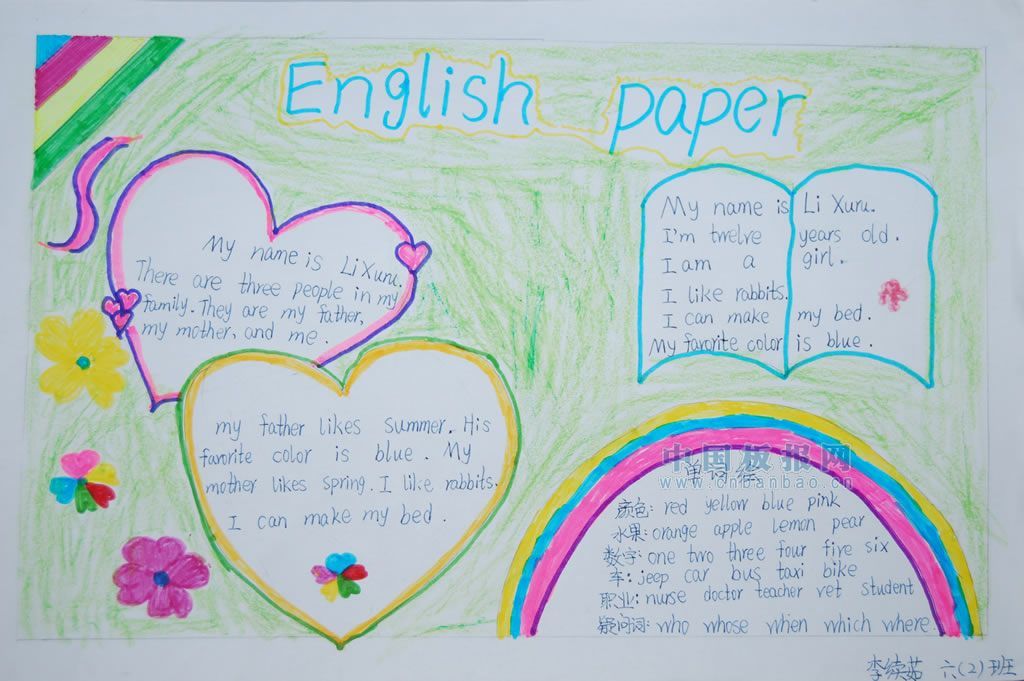 English paper
My name is Li Xuru.
There are three people in my
family. They are my father,
my mother, and me.
my father likes summer. His
favorite color is blue. My
mother likes spring. I like rabbits.
I can make my bed.
My name is Li Xuru.
I'm twelve years old.
I am a girl.
I like rabbits.
I can make my bed.
My favorite color is blue.
中国板报网
www.cnbanbao.cn
颜色: red yellow blue pink
水果: orange apple lemon pear
数字: one two three four five six
车: jeep car bus taxi bike
职业: nurse doctor teacher vet student
疑问词: who whose when which where.
李续茹 六(2)班